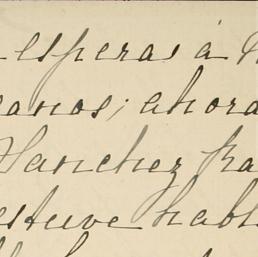 esperas á
anos; ahora
Sanchez ha
estuve habl